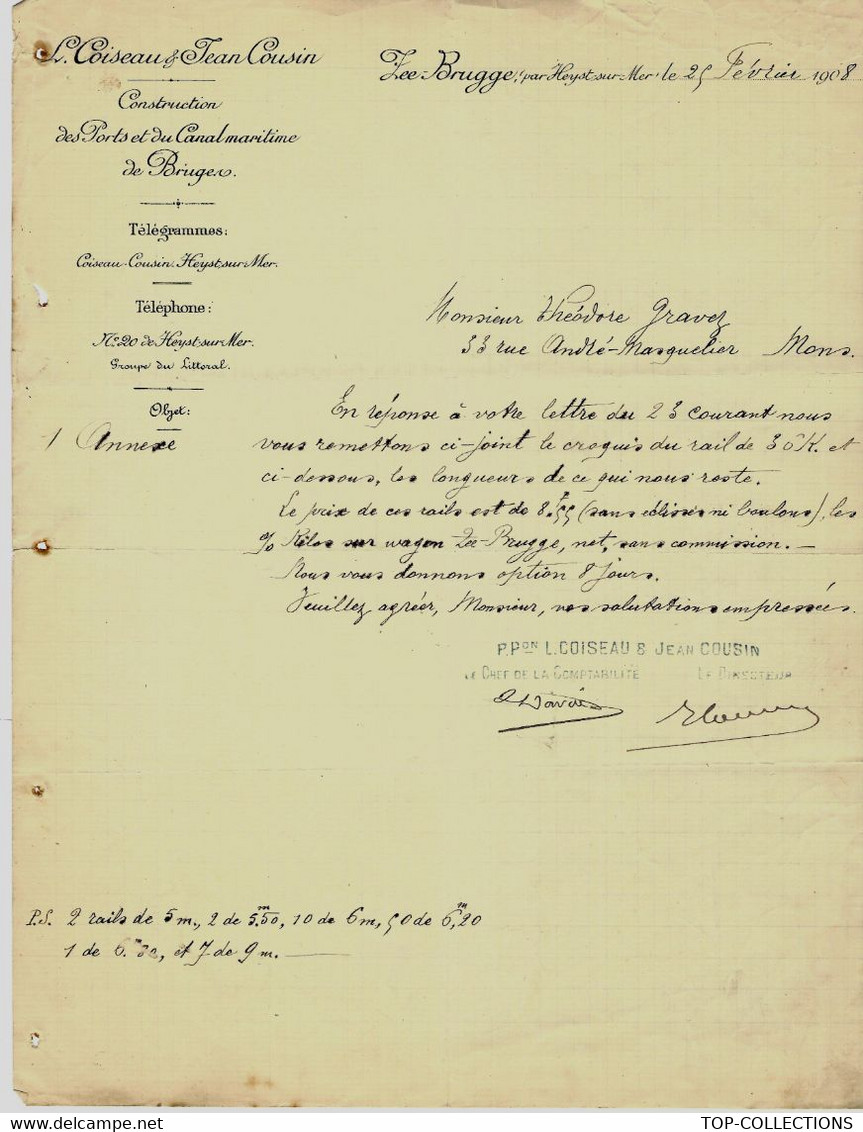 L. Coiseau & Jean Cousin
Construction
des Ports et du Canal maritime
de Bruges.
Télégrammes:
Coiseau-Cousin. Heyst-sur-Mer.
Téléphone:
No. 20 de Heyst-sur-Mer.
Groupe du Littoral.
Objet:
1 Annexe
Zee-Brugge, (par Heyst-sur-Mer) le 25 Février 1908
Monsieur Théodore Gravez
33 rue André-Masquelier Mons.
En réponse à votre lettre du 23 courant nous
vous remettons ci-joint le croquis du rail de 30 K. et
ci-dessous, les longueurs de ce qui nous reste.
Le prix de ces rails est de 8.f55 (sans éclisses ni boulons), les
% Kilos sur wagon Zee-Brugge, net, sans commission. —
Nous vous donnons option 8 jours.
Veuillez agréer, Monsieur, nos salutations empressées.
P. PON L. COISEAU & JEAN COUSIN
LE CHEF DE LA COMPTABILITÉ LE DIRECTEUR
P.S. 2 rails de 5 m., 2 de 5.m50, 10 de 6 m, 50 de 6,m20
1 de 6.m, et 7 de 9 m. —
TOP-COLLECTIONS